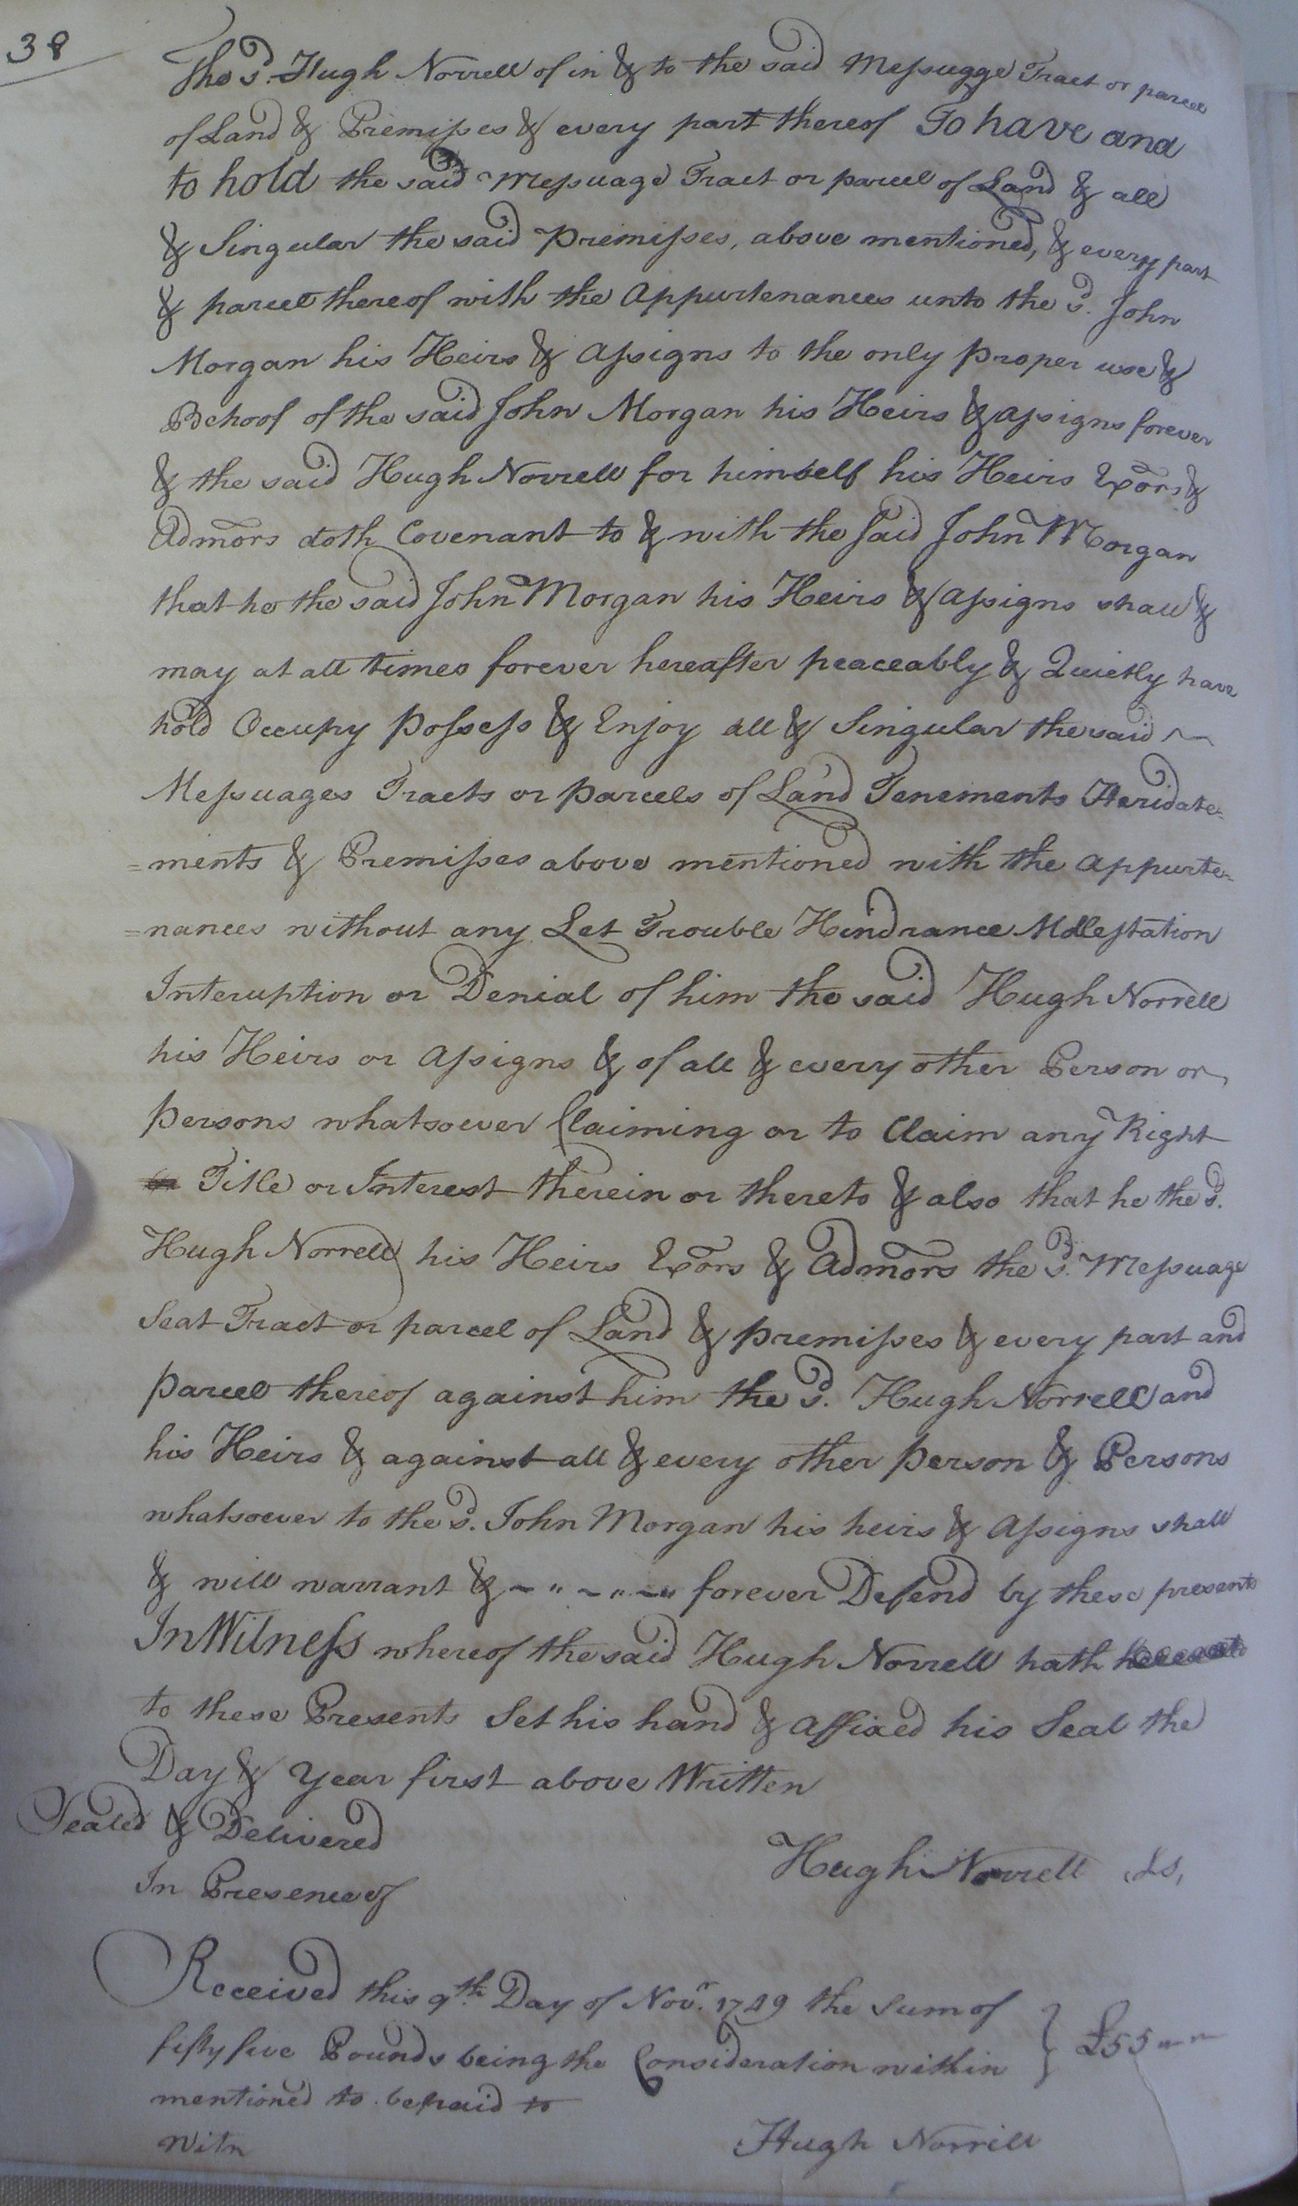 38
The s.d Hugh Norrell of in & to the said Messugge Tract or parcel
of Land & Premisses & every part thereof To have and
to hold the said Messuage Tract or parcel of Land & all
& Singular the said Premisses, above mentioned, & every part
& parcel thereof with the Appurtenances unto the s.d John
Morgan his Heirs & Assigns to the only Proper use &
Behoof of the said John Morgan his Heirs & assigns forever
& the said Hugh Norrell for himself his Heirs Exors &
Admors doth Covenant to & with the said John Morgan
that he the said John Morgan his Heirs & assigns shall &
may at all times forever hereafter peaceably & Quietly have
hold Occupy Possess & Enjoy all & Singular the said
Messuages Tracts or Parcels of Land Tenements Heridate=
=ments & Premisses above mentioned with the appurte=
=nances without any Let Trouble Hindrance Mollestation
Interuption or Denial of him the said Hugh Norrell
his Heirs or assigns & of all & every other Person or
Persons whatsoever Claiming or to Claim any Right
Title or Interest therein or thereto & also that he the s.d
Hugh Norrell his Heirs Exors & Admors the s.d Messuage
Seat Tract or parcel of Land & Premisses & every part and
Parcel thereof against him the s.d Hugh Norrell and
his Heirs & against all & every other Person & Persons
whatsoever to the s.d John Morgan his heirs & Assigns shall
& will warrant & ~ " ~ " ~ " forever Defend by these presents
In Witness whereof the said Hugh Norrell hath
to these Presents Set his hand & affixed his Seal the
Day & Year first above Written
Sealed & Delivered
In Presence of
Hugh Norrell Ls,
Received this 9th Day of Nov.r 1749 the Sum of
fifty five Pounds being the Consideration within } £55 " "
mentioned to be paid to
Witn
Hugh Norrell